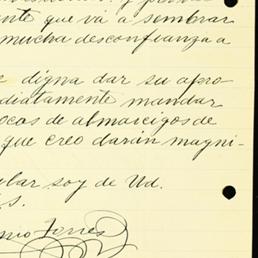 ente que vá a sembrar
mucha desconfianza a
e digna dar su apro-
diatamente mandar
ocas de almarcigos de
que creo darán magni-
lar soy de Ud.
s.s.
nio Torres